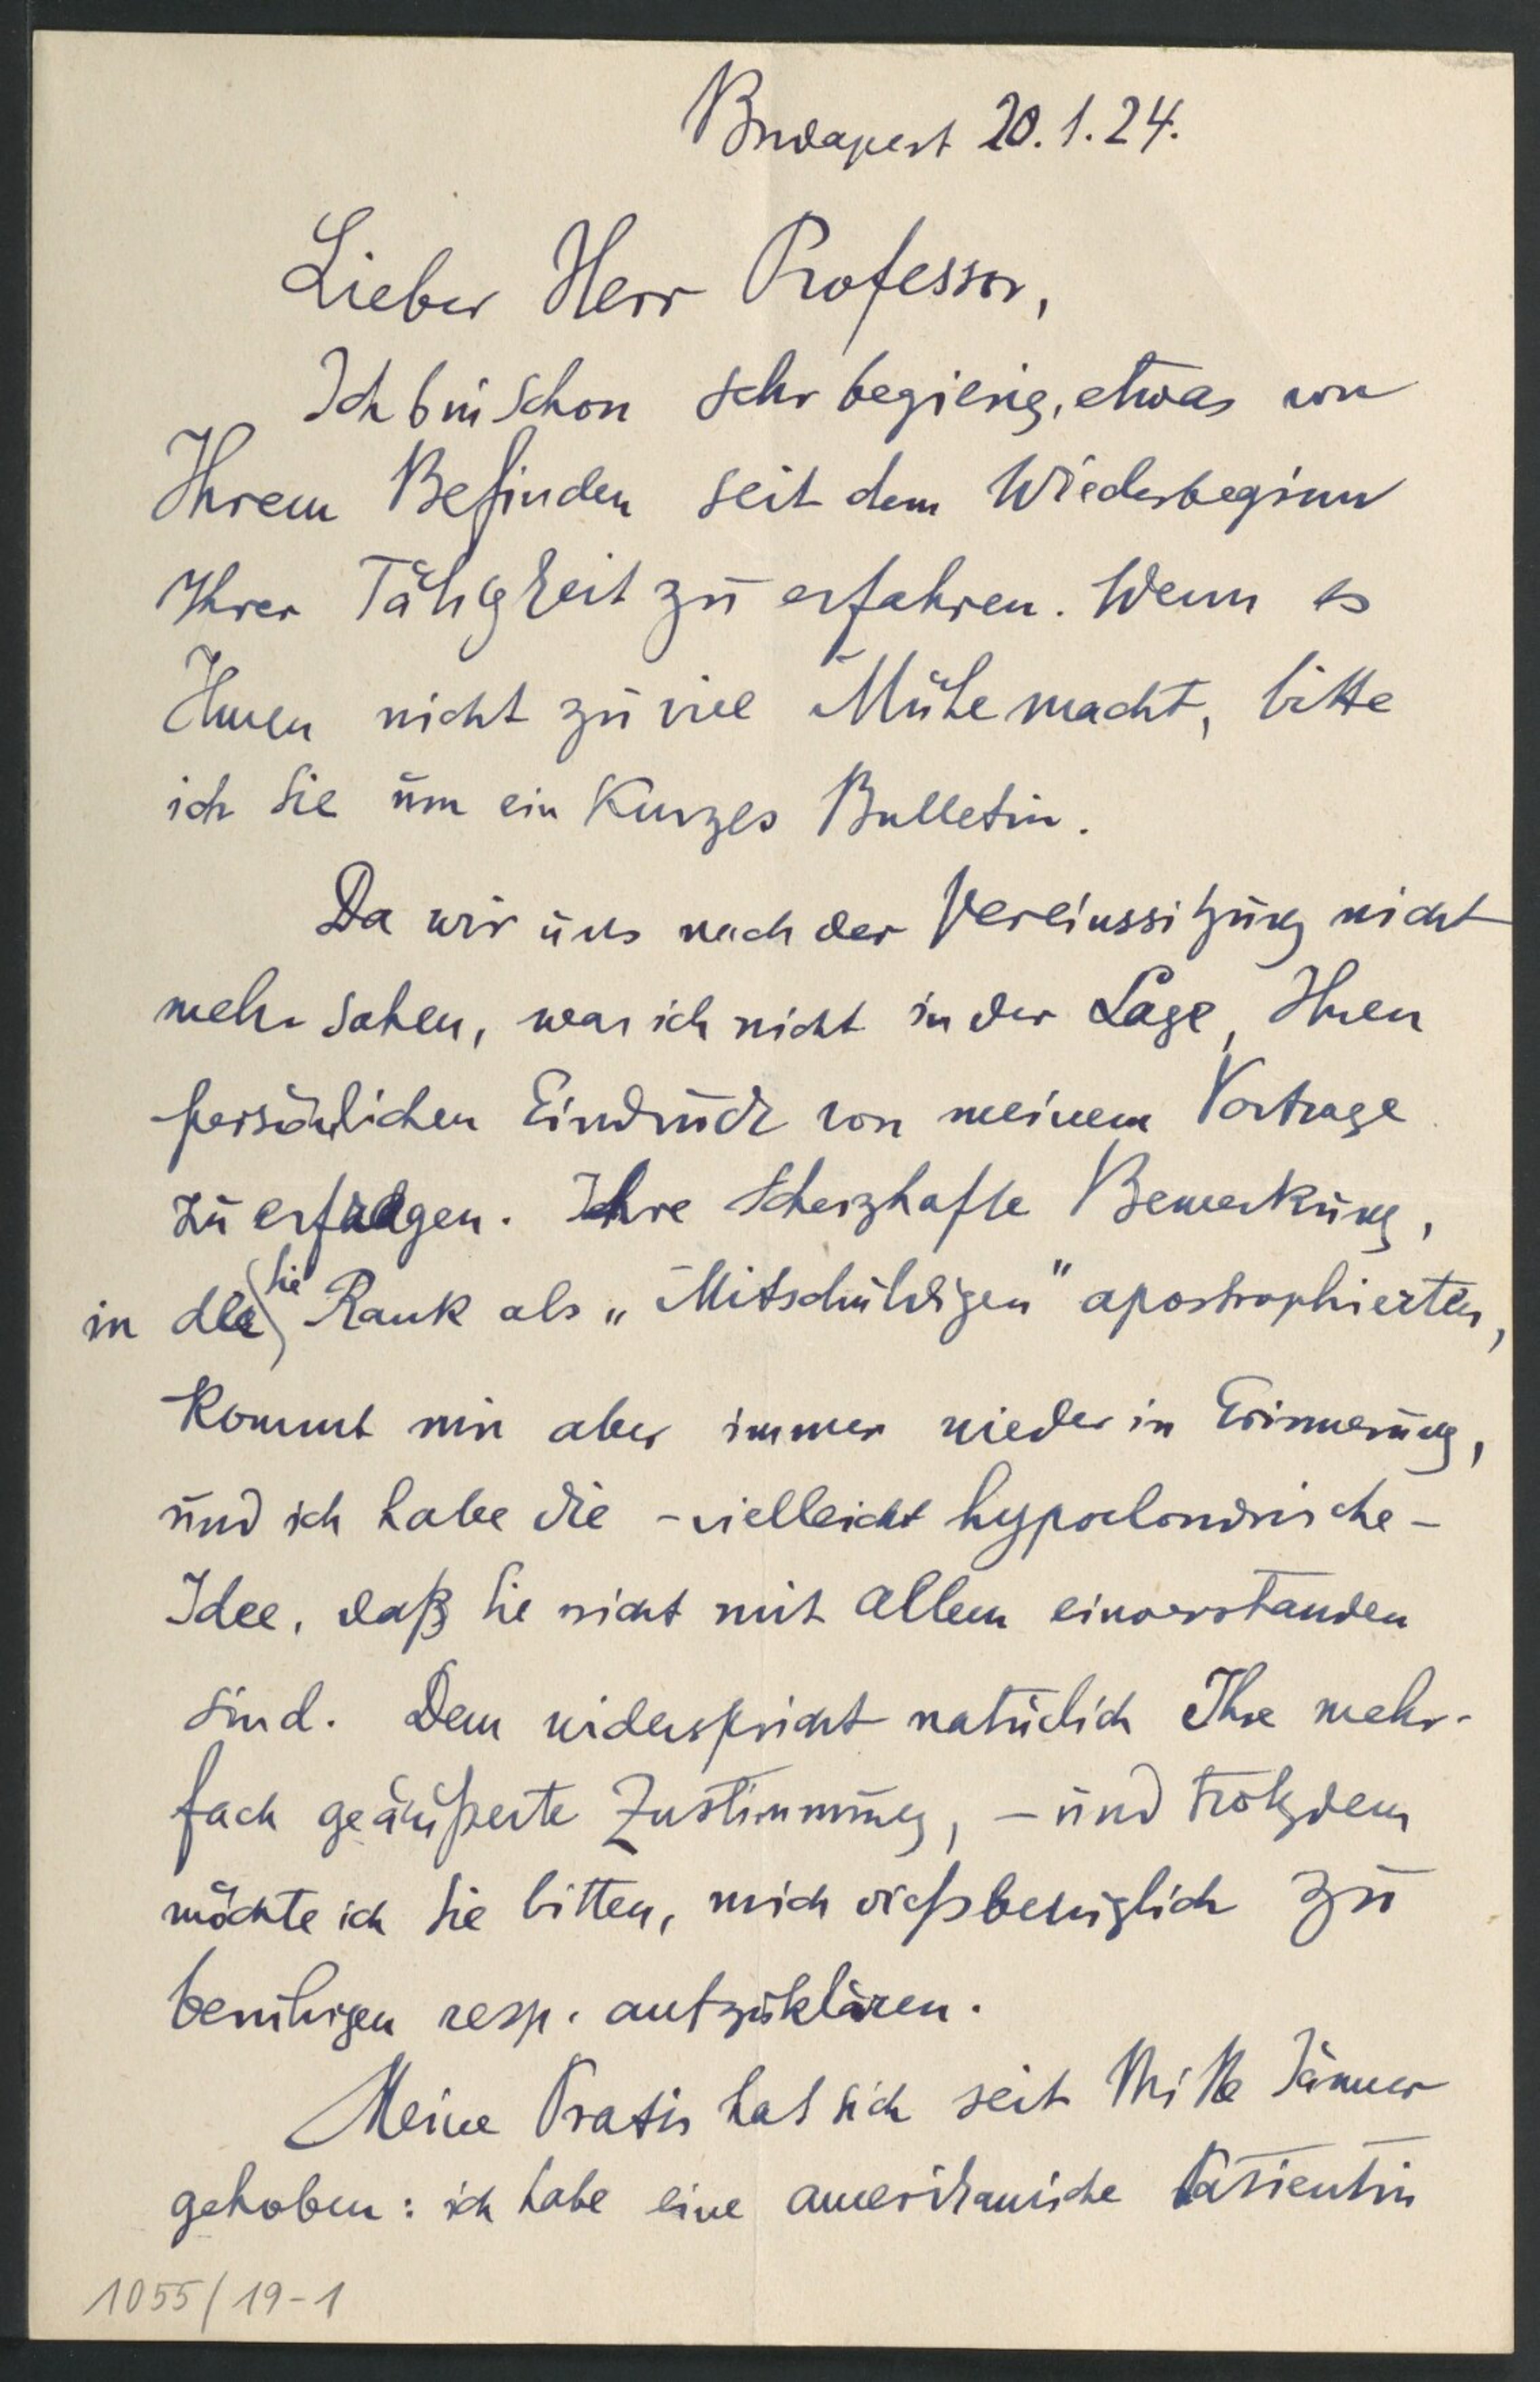 Budapest 20.1.24.
Lieber Herr Professor,
Ich bin schon sehr begierig, etwas von
Ihrem Befinden seit dem Wiederbeginn
Ihrer Tätigkeit zu erfahren. Wenn es
Ihnen nicht zu viel Mühe macht, bitte
ich Sie um ein kurzes Bulletin.
Da wir uns nach der Vereinssitzung nicht
mehr sahen, war ich nicht in der Lage, Ihren
persönlichen Eindruck von meinem Vortrage
zu erfragen. Ihre scherzhafte Bemerkung,
in der Sie Rank als „Mitschuldigen" apostrophierten,
kommt mir aber immer wieder in Erinnerung,
und ich habe die - vielleicht hypochondrische -
Idee, daß Sie nicht mit allem einverstanden
sind. Dem widerspricht natürlich Ihre mehr-
fach geäußerte Zustimmung, - und trotzdem
möchte ich Sie bitten, mich dießbezüglich zu
beruhigen resp. aufzuklären.
Meine Praxis hat sich seit Mitte Jänner
gehoben: ich habe eine amerikanische Patientin
1055/19-1